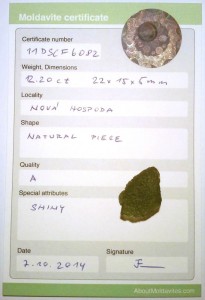 Moldavite certificate
Certificate number
11DSCF6082
Weight, Dimensions
12.20 ct 22x15x5mm
Locality
NOVÁ HOSPODA
Shape
NATURAL PIECE
Quality
A
Special attributes
SHINY
Date Signature
7.10.2014
AboutMoldavites.com